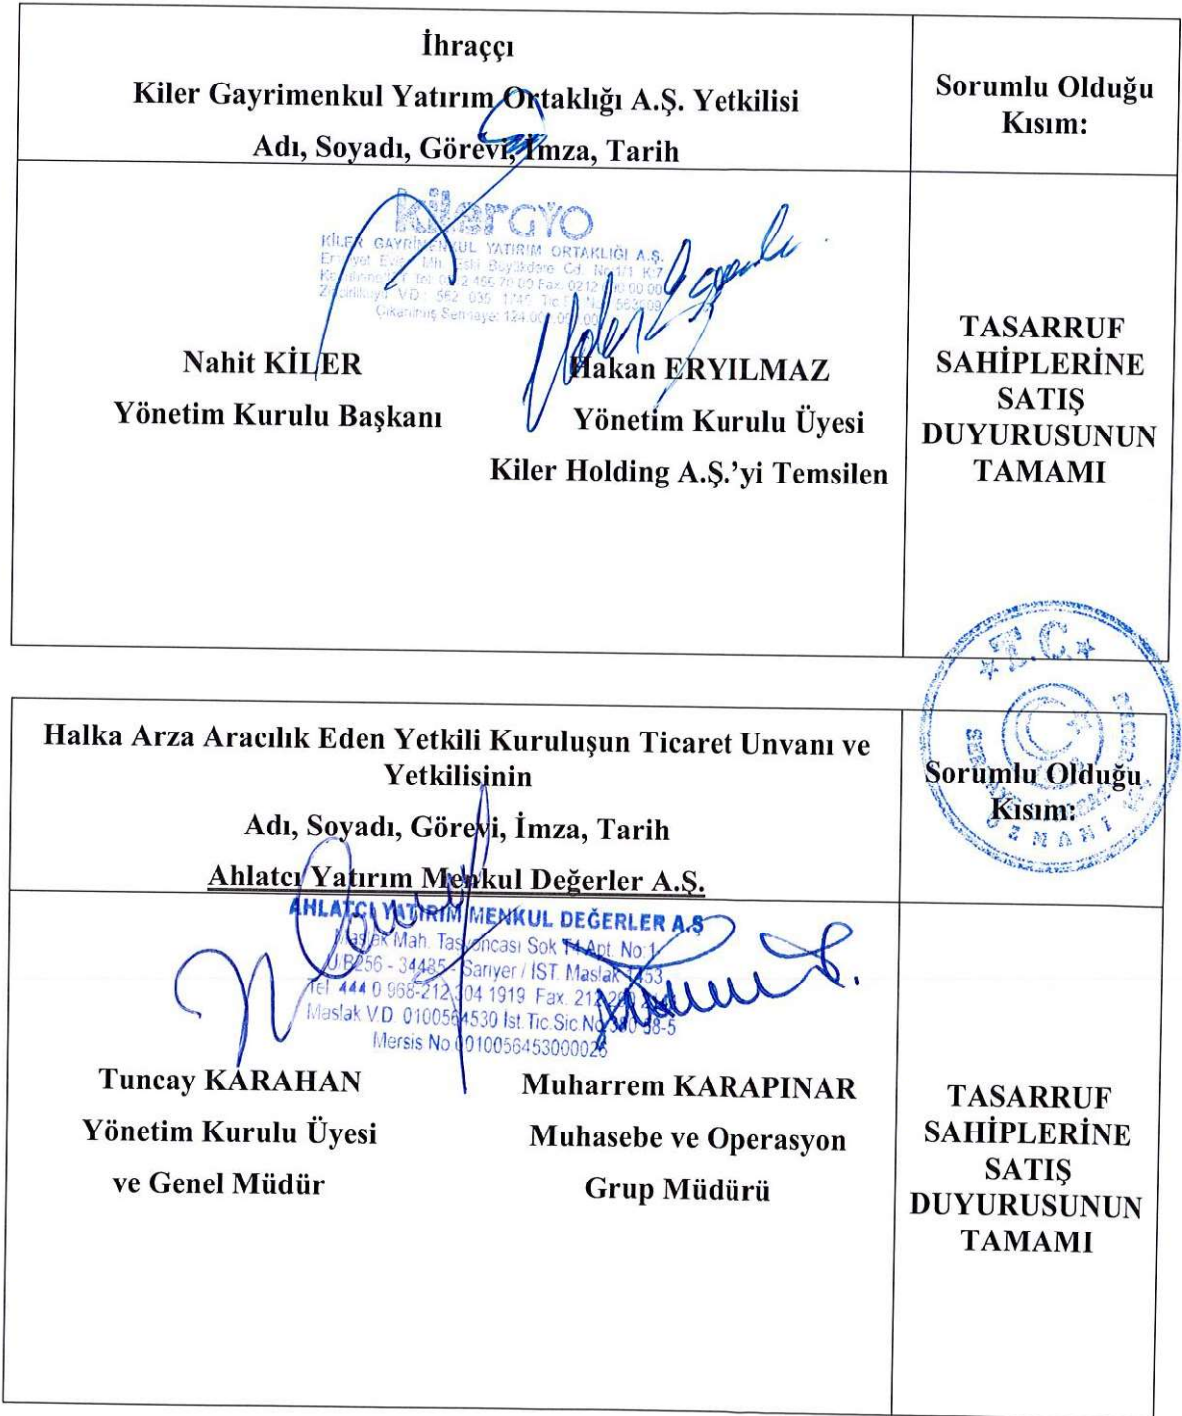 İhraççı
Kiler Gayrimenkul Yatırım Ortaklığı A.Ş. Yetkilisi
Adı, Soyadı, Görevi, İmza, Tarih
Sorumlu Olduğu
Kısım:
kilerGYO
KİLER GAYRİMENKUL YATIRIM ORTAKLIĞI A.Ş.
Nahit KİLER
Yönetim Kurulu Başkanı
Hakan ERYILMAZ
Yönetim Kurulu Üyesi
Kiler Holding A.Ş.’yi Temsilen
TASARRUF
SAHİPLERİNE
SATIŞ
DUYURUSUNUN
TAMAMI
T.C.
Halka Arza Aracılık Eden Yetkili Kuruluşun Ticaret Unvanı ve
Yetkilisinin
Adı, Soyadı, Görevi, İmza, Tarih
Ahlatcı Yatırım Menkul Değerler A.Ş.
Sorumlu Olduğu
Kısım:
AHLATCI YATIRIM MENKUL DEĞERLER A.Ş
Maslak Mah. Taşyoncası Sok T4 Apt. No:1
U/B256 - 34485 - Sarıyer / İST. Maslak 1453
Tel 444 0 968-212 304 1919 Fax. 212
Maslak V.D. 0100564530 İst.Tic.Sic.No
Mersis No 0010056453000026
Tuncay KARAHAN
Yönetim Kurulu Üyesi
ve Genel Müdür
Muharrem KARAPINAR
Muhasebe ve Operasyon
Grup Müdürü
TASARRUF
SAHİPLERİNE
SATIŞ
DUYURUSUNUN
TAMAMI